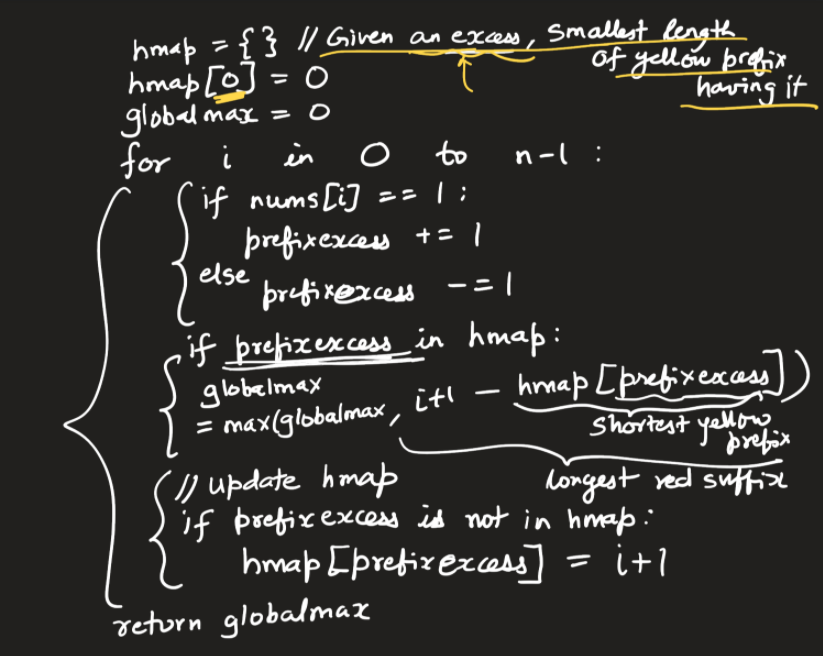 hmap = { } // Given an excess, smallest length
of yellow prefix
having it
hmap[0] = 0
globalmax = 0
for i in 0 to n-1 :
if nums[i] == 1 :
prefixexcess += 1
else
prefixexcess -= 1
if prefixexcess in hmap:
globalmax
= max(globalmax, i+1 - hmap[prefixexcess])
shortest yellow
prefix
longest red suffix
// update hmap
if prefixexcess is not in hmap:
hmap[prefixexcess] = i+1
return globalmax